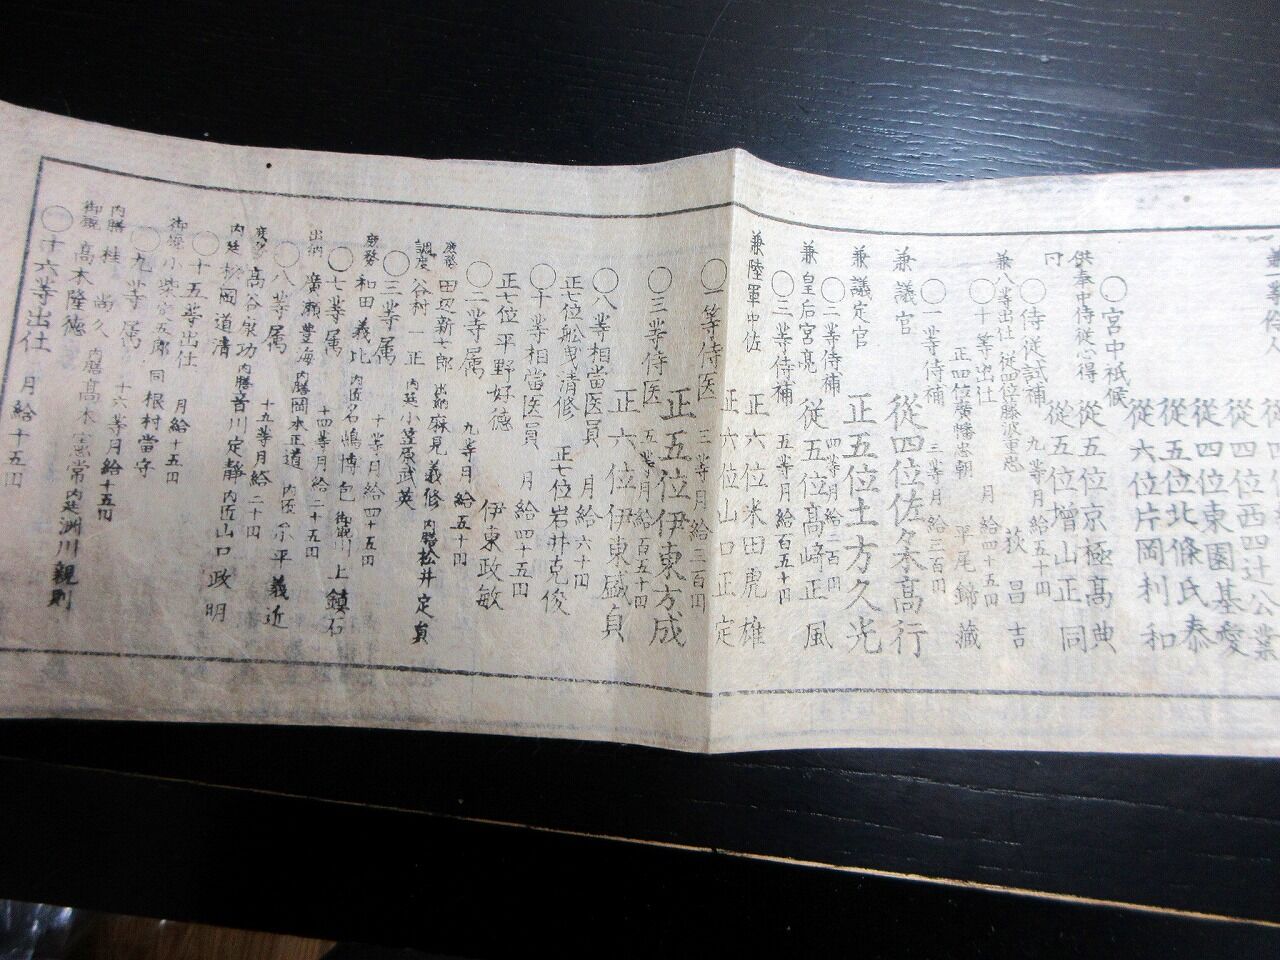 従四位西四辻公業
従四位東園基愛
従五位北條氏泰
従六位片岡利和
〇宮中祗候
供奉中侍従心得 従五位京極高典
同 従五位増山正同
〇侍従試補 九等月給五十円
荻昌吉
兼八等出仕 従四位藤波重忠
〇十等出仕 月給四十五円
正四位廣幡忠朝 平尾鍗藏
〇一等侍補 三等月給三百円
兼議官 従四位佐々木高行
兼議定官 正五位土方久光
〇二等侍補 四等月給二百円
兼皇后宮亮 従五位高崎正風
〇三等侍補 五等月給百五十円
兼陸軍中佐 正六位米田虎雄
正六位山口正定
〇一等侍医 三等月給三百円
正五位伊東方成
〇三等侍医 五等月給百五十円
正六位伊東盛貞
〇八等相當医員 月給六十円
正七位舩曳清修 正七位岩井克俊
〇十等相當医員 月給四十五円
正七位平野好德 伊東政敏
〇二等属 九等月給五十円
庶務 田辺新七郎 出納 麻見義修 内膳 松井定貞
調度 谷村一正 内廷 小笠原武英
〇三等属 十等月給四十五円
庶務 和田義比 内匠 名嶋博包 御厩 川上鎮石
〇七等属 十四等月給二十五円
出納 廣瀬豊海 内膳 岡本正道 内匠 小平義近
〇八等属 十五等月給二十円
庶務 高谷泉功 内膳 音川定静 内匠 山口政明
内廷 松岡道清
〇十五等出仕 月給十五円
御厩 小柴五郎 同 根村當守
〇九等属 十六等月給十五円
内膳 桂尚久 内膳 高木憲常 内廷 洲川親則
御厩 高木隆徳
〇十六等出仕 月給十五円